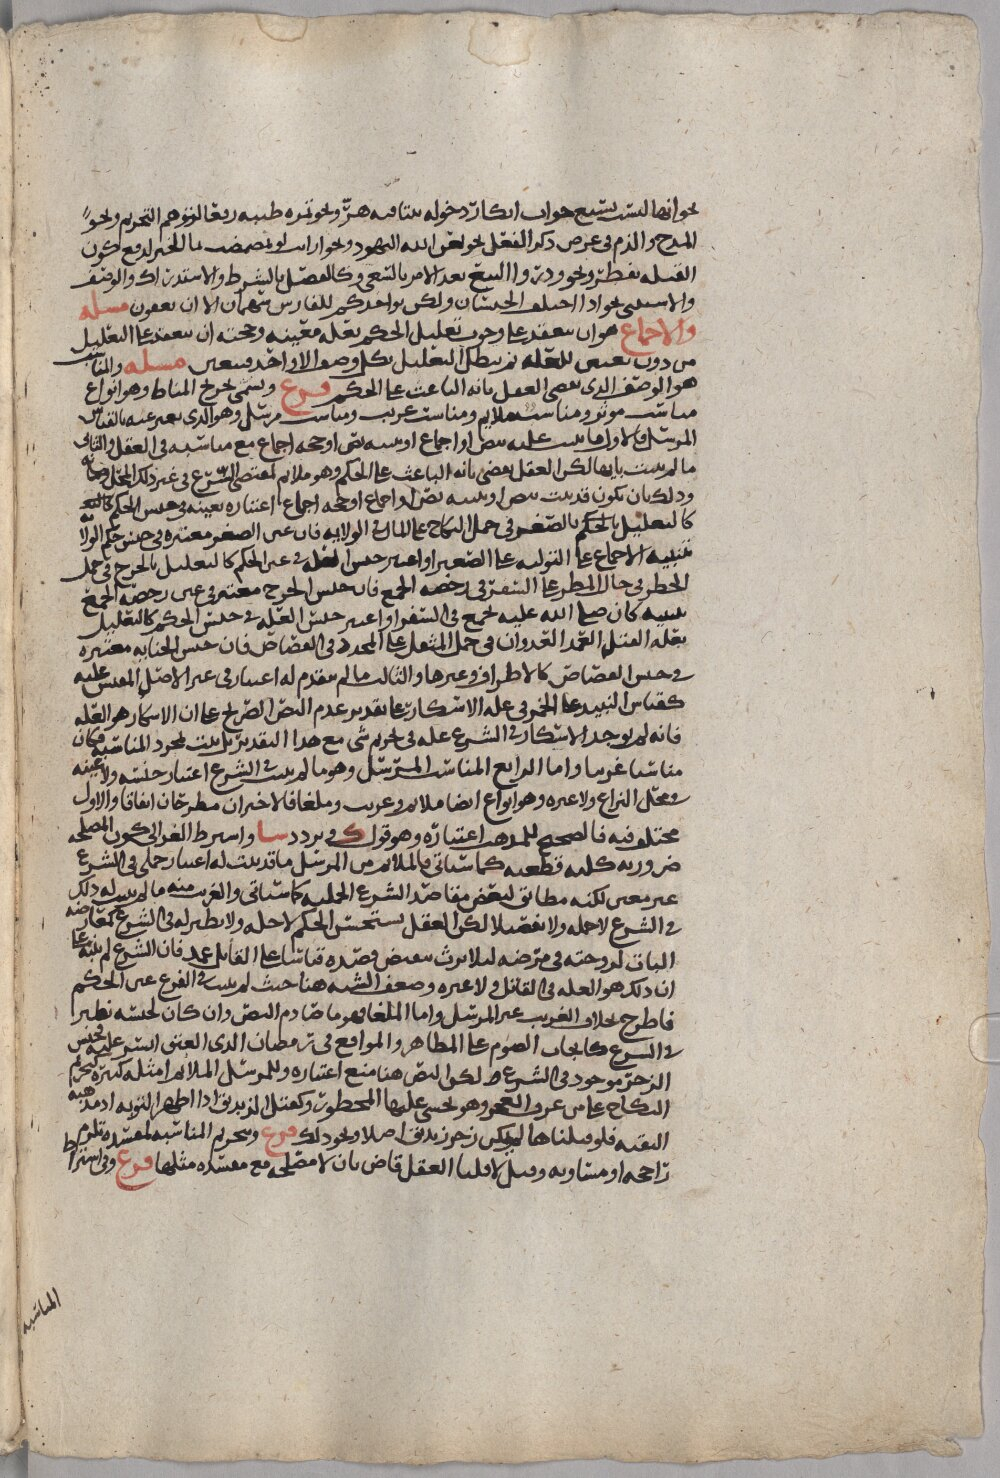 نحو انها ليست بسبع جواب انكار دخوله بيتا فيه هرّ ونحو تمره طيبه ريقا لتوهم التحريم ونحو
المدح والذم في عرض ذكر الفعل نحو لعن الله اليهود ونحو ارايت لو تمضمضت بما للخبر لدفع كون
القبله تفطر ونحو وذروا البيع بعد الامر بالسعي وكالفصل بالشرط والاستدراك والوصف
والاستثنى نحو اذا اختلف الجنسان ولكن يواخذكم للفارس سهمان الا ان يعفون مسله
والاجماع هو ان ينعقد على وجوب تعليل الحكم بعله معينه وحجته ان ينعقد على التعليل
من دون تعيين للعله ثم يبطل التعليل بكل وصف الا واحد فيتعين مسله والمناسب
هو الوصف الذي يقضي العقل بانه الباعث على الحكم فرع ويسمى تخرج المناط وهو انواع
مناسب موثر ومناسب ملايم ومناسب غريب ومناسب مرسل وهو الذي يعبر عنه بالقياس
المرسل فالاول ما يثبت عليه بنص او اجماع او تنبيه نص او حجه اجماع مع مناسبه في العقل والثاني
ما لم يثبت بايها لكن العقل يقضي بانه الباعث على الحكم وهو ملايم لمقتضى الشرع في غير ذلك المحل
وذلك بان يكون قد يثبت بنص او تنبيه نص او اجماع او حجه اجماع اعتباره بعينه في جنس الحكم
كالتعليل بالحكم بالصغر في حمل النكاح على المال في الولايه فان عين الصغر معتبره في جنس حكم الولايه
بتنبيه الاجماع على التوليه على الصغير او اعتبر جنس العله في عين الحكم كالتعليل بالحرج في حمل
الحظر في حال المطر على السفر في رخصه الجمع فان جنس الحرج معتبر في عين رخصه الجمع
بتنبيه كان صلى الله عليه يجمع في السفر او اعتبر جنس العله في جنس الحكم كالتعليل
بعله القتل العمد العدوان في حمل المثقل على المحدد في القصاص فان جنس الجنايه معتبره
في جنس القصاص كالاطراف وغيرها والثالث ما لم يتقدم له اعتبار في غير الاصل المقيس عليه
كقياس النبيذ على الخمر في عله الاسكار على تقدير عدم النص الصريح على ان الاسكار هو العله
فانه لم يوجد الاسكار في الشرع عله في تحريم شي مع هذا التقدير بل يثبت لمجرد المناسبه فكان
مناسبا غريبا واما الرابع المناسب المرسل وهو ما لم يثبت في الشرع اعتبار جنسه ولا عينه
في محل النزاع ولا غيره وهو انواع ايضا ملايم وغريب وملغا فالاخران مطرحان اتفاقا والاول
مختلف فيه فالصحيح للمذهب اعتباره وهو قول ك وبردد واشترط الغزالي كون المصلحه
ضروريه كليه قطعيه كما سياتي فالملايم من المرسل ما قد يثبت له اعتبار جملي في الشرع
غير معين لكنه مطابق لبعض مقاصد الشرع الجليه كما سياتي والغريب منه ما لم يثبت له ذلك
في الشرع لا جمله ولا تفصيلا لكن العقل يستحسن الحكم لاجله ولا نظير له في الشرع كمعارضه
البات لزوجته في مرضه ليلا يرث بنقيض قصده قياسا على القاتل عمدا فان الشرع لم ينبه على
ان ذلك هو العله في القاتل ولا غيره وضعف الشبه هنا حيث لم يثبت في الفرع عين الحكم
فاطرح بخلاف الغريب غير المرسل واما الملغا فهو ما صادم النص وان كان لجنسه نظير
في الشرع كايجاب الصوم على المظاهر والمواقع في رمضان الذي العتق ايسر عليه فجنس
الزجر موجود في الشرع لكن النص هنا منع اعتباره وللمرسل الملايم امثله كثيره كتحريم
النكاح على من عرف العجز وهو يخشى عليها المحظور وكقتل الزنديق اذا اظهر التوبه اذ مذهبه
التقيه فلو قبلناها لم يمكن زجر زنديق اصلا ونحو ذلك فرع وتنخرم المناسبه لمفسده تلزم
راجحه او مساويه وقيل لا قلنا العقل قاض بان لا مصلحه مع مفسده مثلها فرع وفي اشتراط
المناسبه